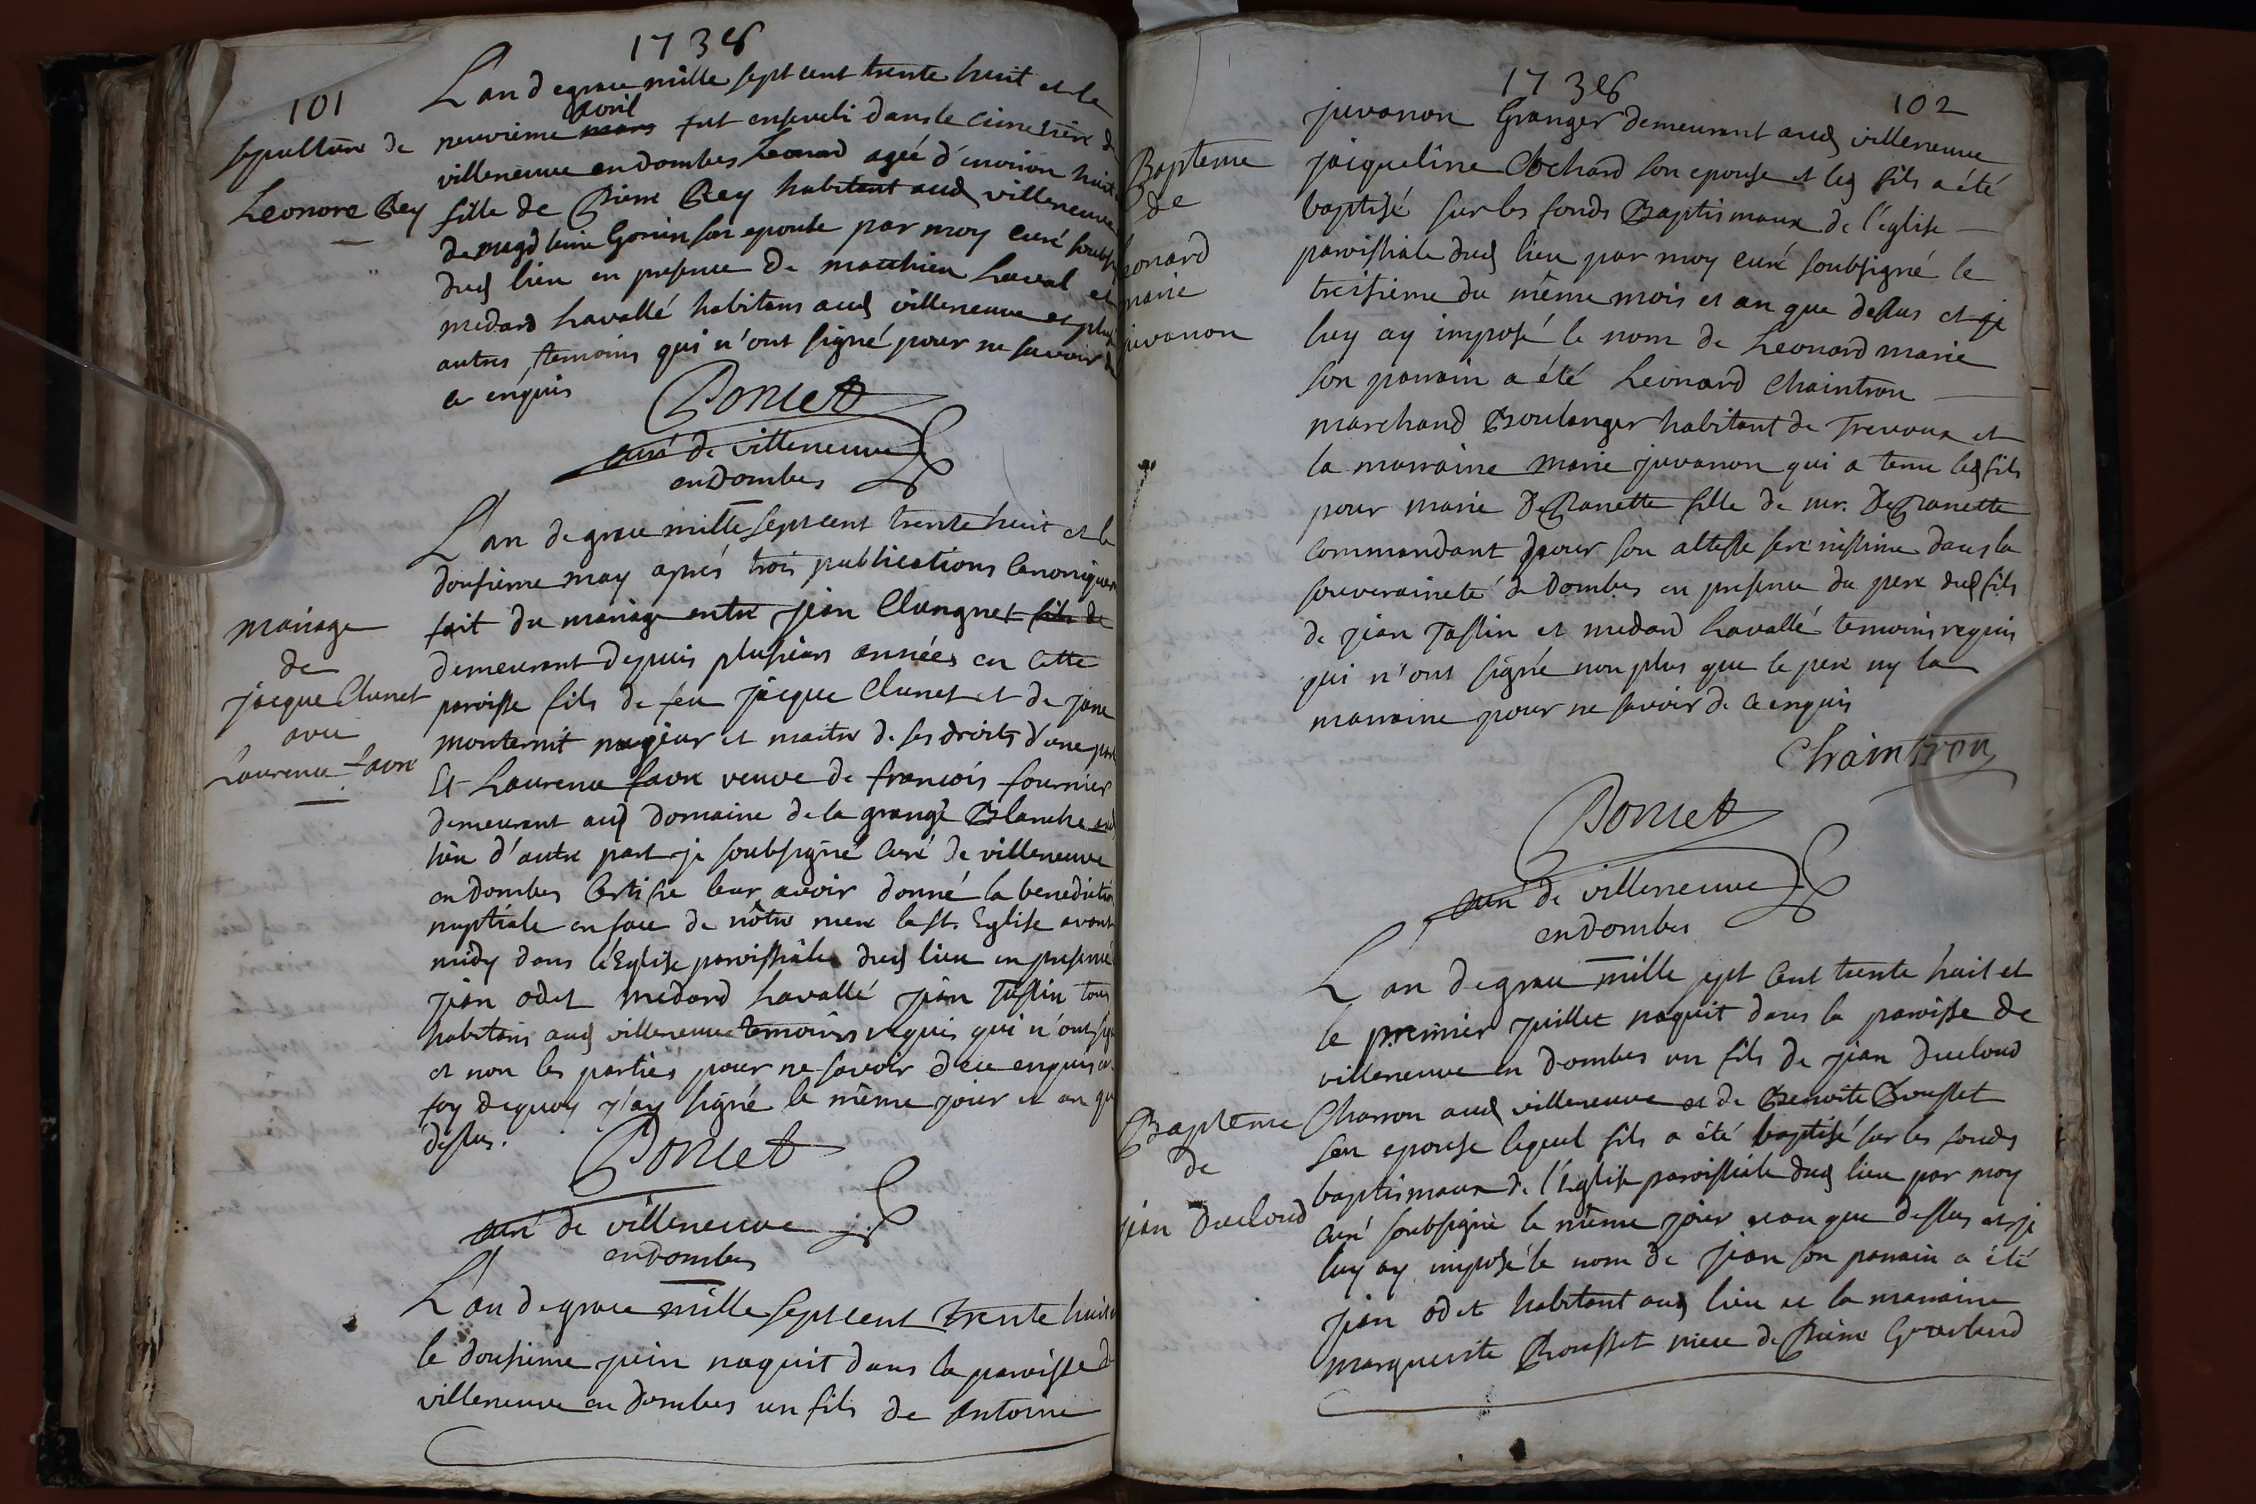 1738
101
L'an de grace mille sept cent trente huit et le
avril
neuvieme mars fut enseveli dans le cimetiere de
villeneuve en dombes Leonard agée d'environ huit
fille de Pierre Rey habitant aud villeneuve
de magdleine Gonin son epouse par moy curé soubs
dud lieu en presence de matthieu Laval et
medard Lavallé habitans aud villeneuve et plus
autres temoins qui n'ont signé pour ne savoir de
ce enquis
Poncet
curé de villeneuve
en dombes
sepulture de
Leonore Rey
L'an de grace mille sept cent trente huit et le
dousieme may aprés trois publications canoniques
fait du mariage entre jean Clungnet fils de
demeurant depuis plusieurs années en cette
paroisse fils de feu jacque Clunet et de jane
monternit majeur et maitre de ses droits d'une part
Et Laurence favre veuve de francois fournier
demeurant aud domaine de la grange Blanche aud
lieu d'autre part je soubsigné curé de villeneuve
en dombes certifie leur avoir donné la benediction
nuptiale en face de nôtre mere la st. Eglise avant
midy dans l'Eglise paroissiale dud lieu en presence
jean odet medard Lavallé jean Tastin tous
habitans aud villeneuve temoins requis qui n'ont sig
et non les parties pour ne savoir de ce enquis en
foy dequoy j'ay signé le même jour et an que
dessus.
Poncet
curé de villeneuve
en dombes
mariage
de
jacque Clunet
avec
Laurence favre
L'an de grace mille sept cent trente huit et
le dousieme juin naquit dans la paroisse de
villeneuve en dombes un fils de Antoine
1738
102
juvanon Granger demeurant aud villeneuve
jacqueline Cochard son epouse et leq fils a été
baptisé sur les fonds Baptismaux de l'église
paroissiale dud lieu par moy curé soubsigné le
treisieme du même mois et an que dessus et je
luy ay imposé le nom de Leonard marie
son parrain a été Leonard Chaintron
marchand Boulanger habitant de Trevoux et
la marraine marie juvanon qui a tenu led fils
pour marie De Ranette fille de mr. De Ranette
commandant pour son altesse serenissime dans la
souveraineté de Dombes en presence du pere dud fils
de jean Tastin et medard Lavallé temoins requis
qui n'ont signé non plus que le pere ny la
marraine pour ne savoir de ce enquis
Chaintron
Poncet
curé de villeneuve
en dombes
Bapteme
de
Leonard
marie
juvanon
L'an de grace mille sept cent trente huit et
le premier juillet naquit dans la paroisse de
villeneuve en dombes un fils de jean Ducloud
Charron aud villeneuve et de Benoite Rousset
son epouse lequel fils a été baptisé sur les fonds
baptismaux de l'Eglise paroissiale dud lieu par moy
curé soubsigné le même jour et an que dessus et je
luy ay imposé le nom de jean son parrain a été
jean odet habitant aud lieu et la marraine
marguerite Rousset niece de Pierre
Baptême
de
jean Ducloud